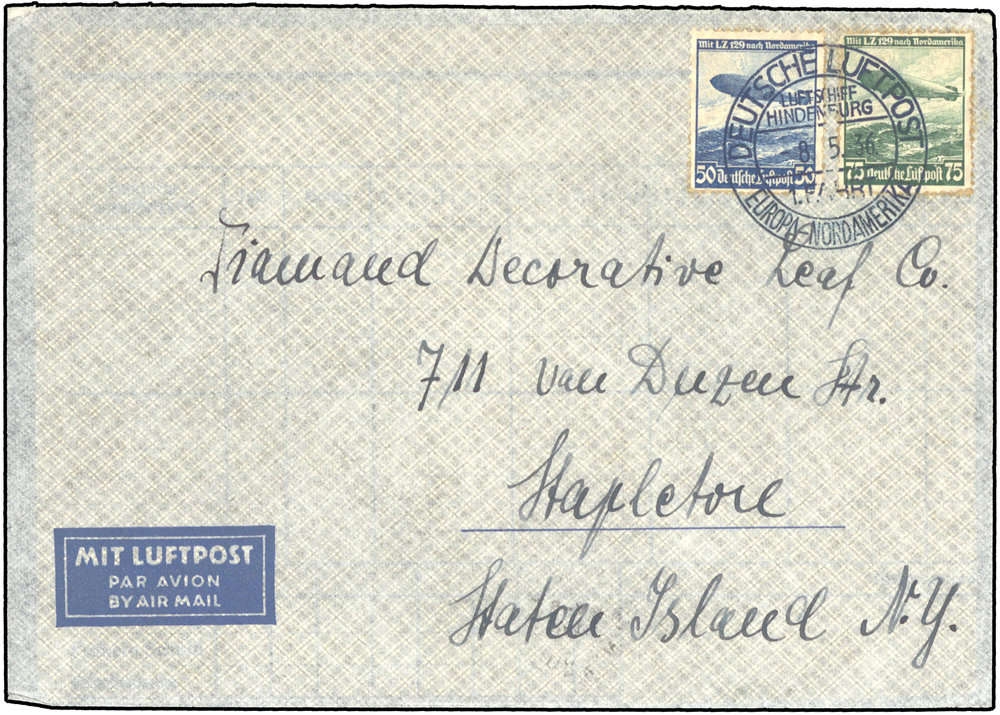 Mit LZ 129 nach Nordamerika
50 Deutsche Luftpost 50
Mit LZ 129 nach Nordamerika
75 Deutsche Luftpost 75
DEUTSCHE LUFTPOST
LUFTSCHIFF
HINDENBURG
8.5.36
1.FAHRT
EUROPA-NORDAMERIKA
Diamand Decorative Leaf Co.
711 van Duzen Str.
Stapleton
Staten Island N.Y.
MIT LUFTPOST
PAR AVION
BY AIR MAIL